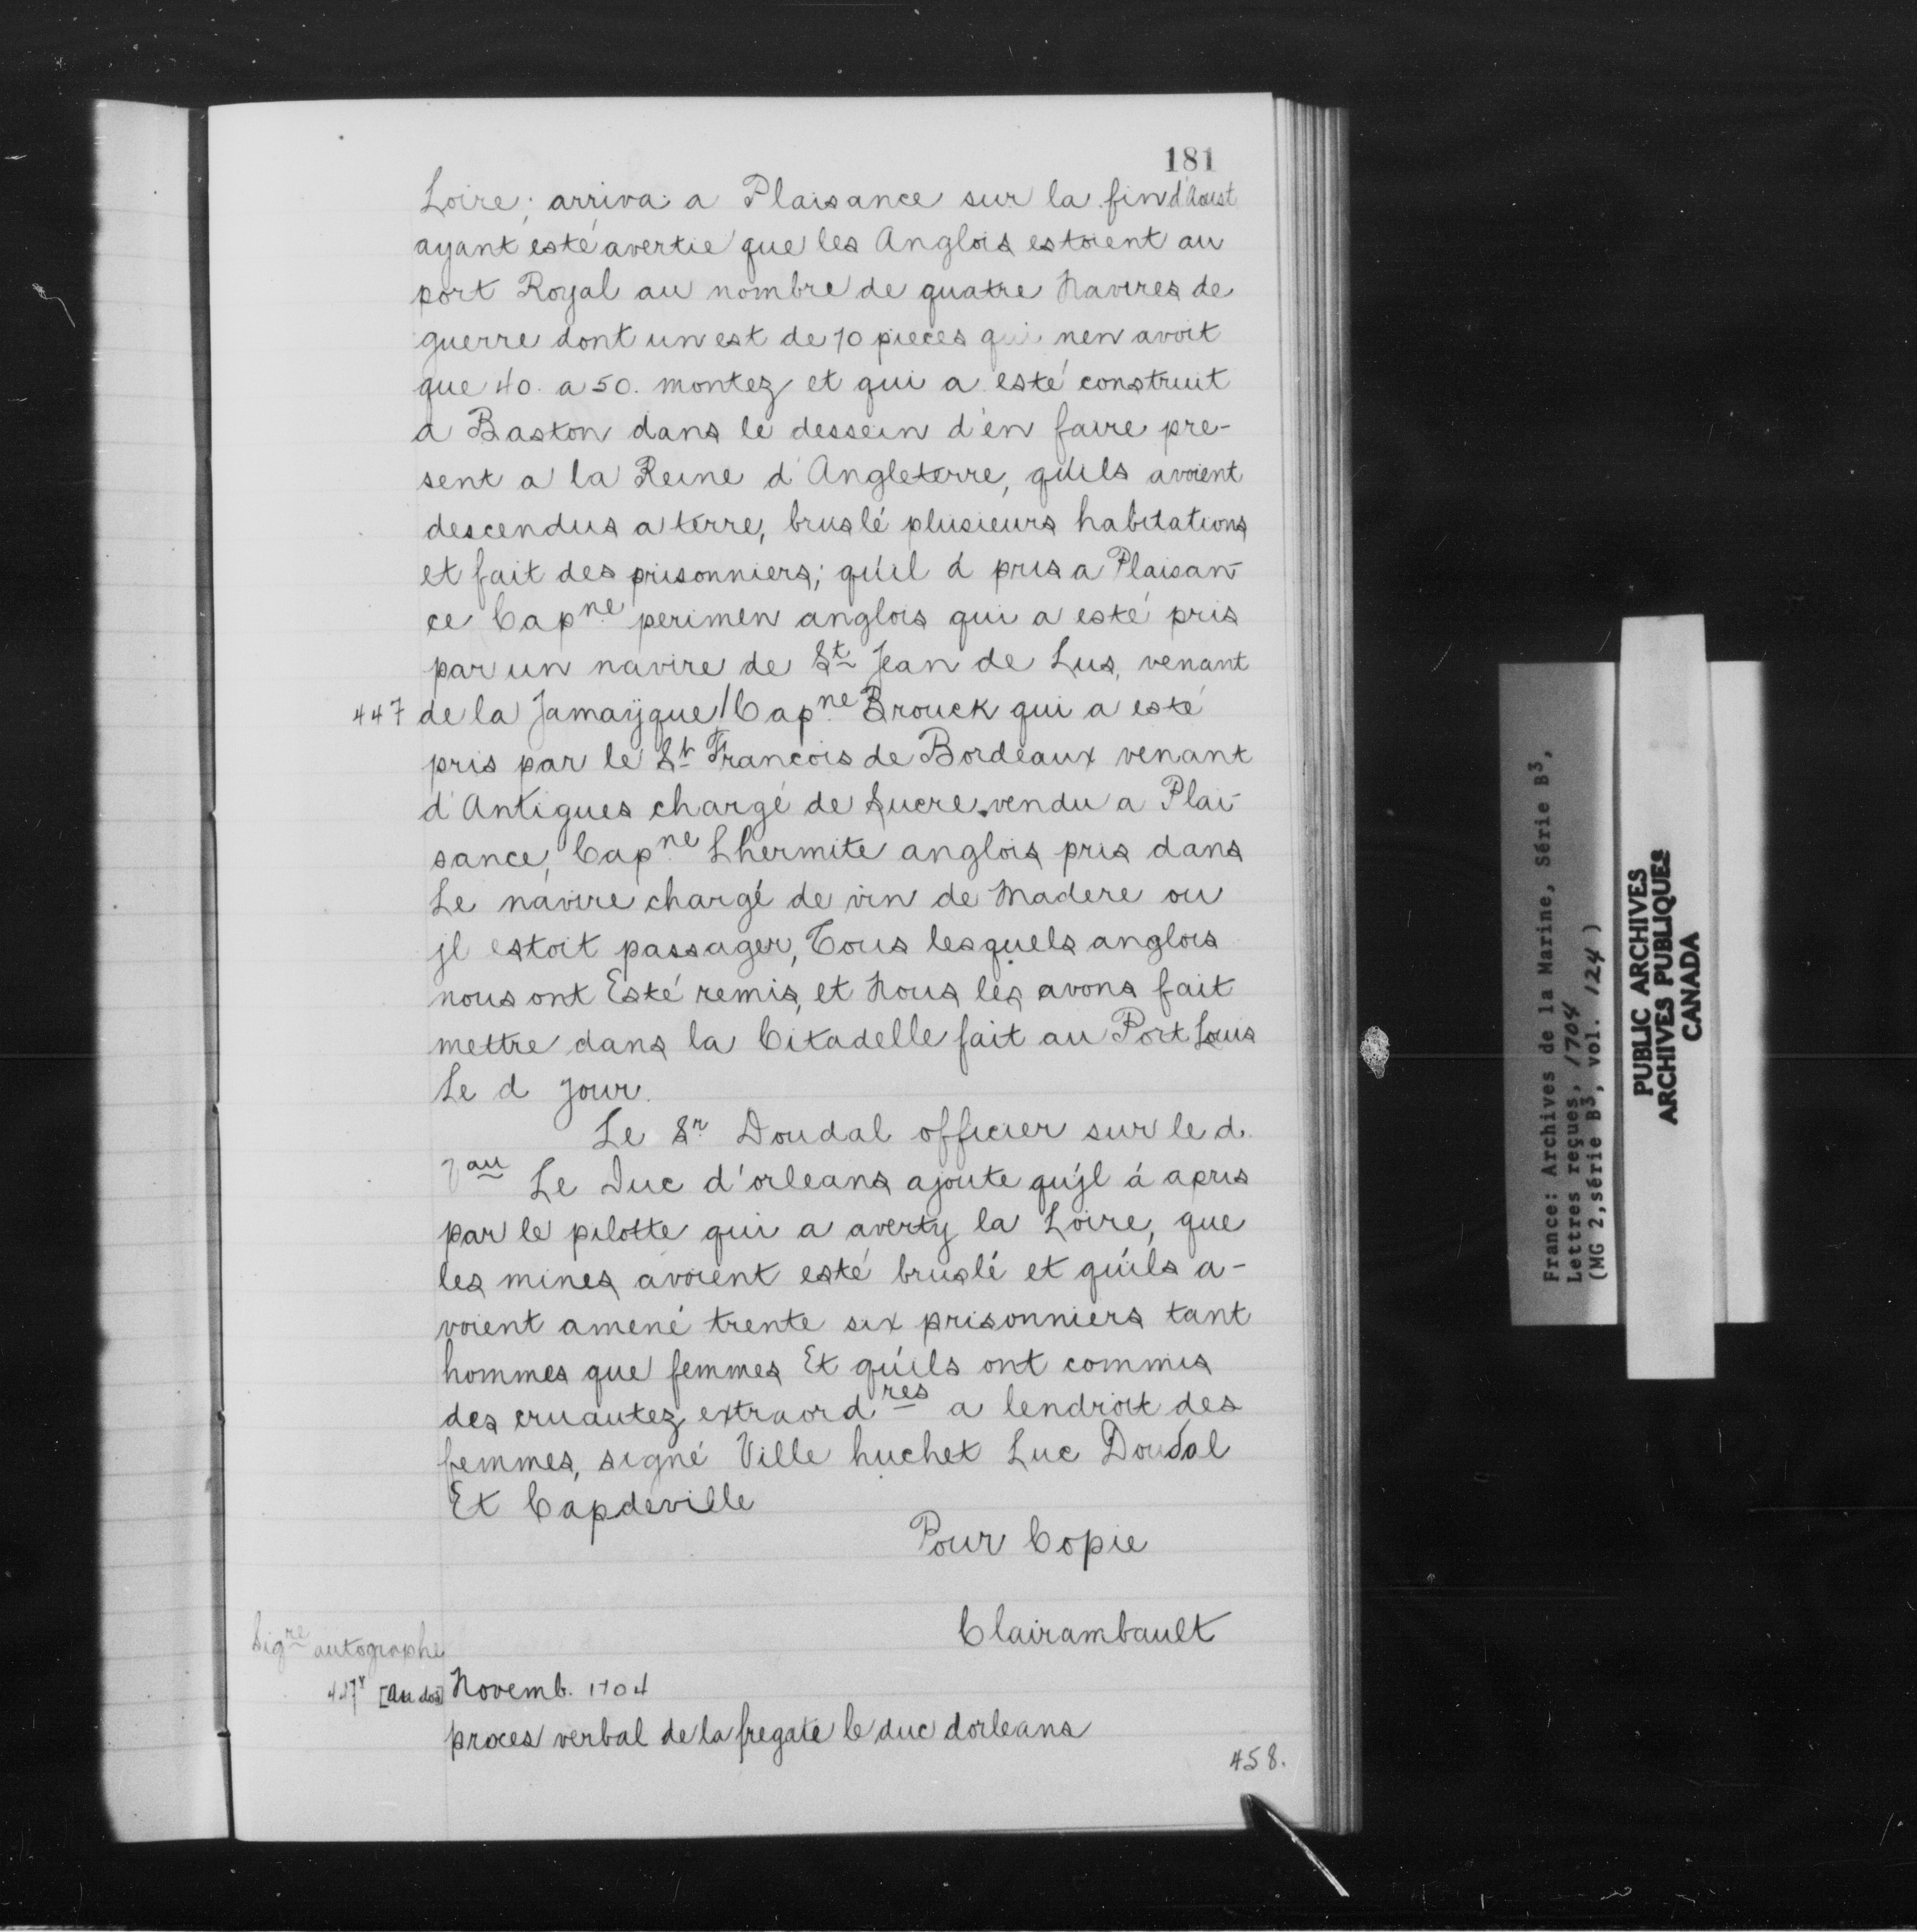 181
Loire; arriva a Plaisance sur la fin d'Aoust
ayant esté avertie que les Anglois estoient au
port Royal au nombre de quatre Navires de
guerre dont un est de 70 pieces qui nen avoit
que 40. a 50. montez et qui a esté construit
a Baston dans le dessein d'en faire pre-
sent a la Reine d'Angleterre, qu'ils avoient
descendus a terre, bruslé plusieurs habitations
et fait des prisonniers; qu'il á pris a Plaisan-
ce Capne perimen anglois qui a esté pris
par un navire de St Jean de Lus, venant
447 de la Jamayque / Capne Brouck qui a esté
pris par le St Francois de Bordeaux venant
d'Antigues chargé de sucre vendu a Plai-
sance, Capne Lhermite anglois pris dans
Le navire chargé de vin de Madere ou
jl estoit passager, Tous lesquels anglois
nous ont Esté remis, et Nous les avons fait
mettre dans la Citadelle fait au Port Louis
Le d jour.
Le Sr Doudal officier sur le d.
Vau Le Duc d'orleans ajoute qu'jl á apris
par le pilotte qui a averty la Loire, que
les mines avoient esté bruslé et qu'ils a-
voient amené trente six prisonniers tant
hommes que femmes Et qu'ils ont commis
des cruautez extraordres a lendroit des
femmes, signé Ville huchet Luc Doudal
Et Capdeville
Pour Copie
Clairambault
Sigre autographe
447v [Au dos] Novemb. 1704
proces verbal de la fregate le duc dorleans
458.
France: Archives de la Marine, Série B3,
Lettres reçues, 1704
(MG 2, série B3, vol. 124)
PUBLIC ARCHIVES
ARCHIVES PUBLIQUES
CANADA